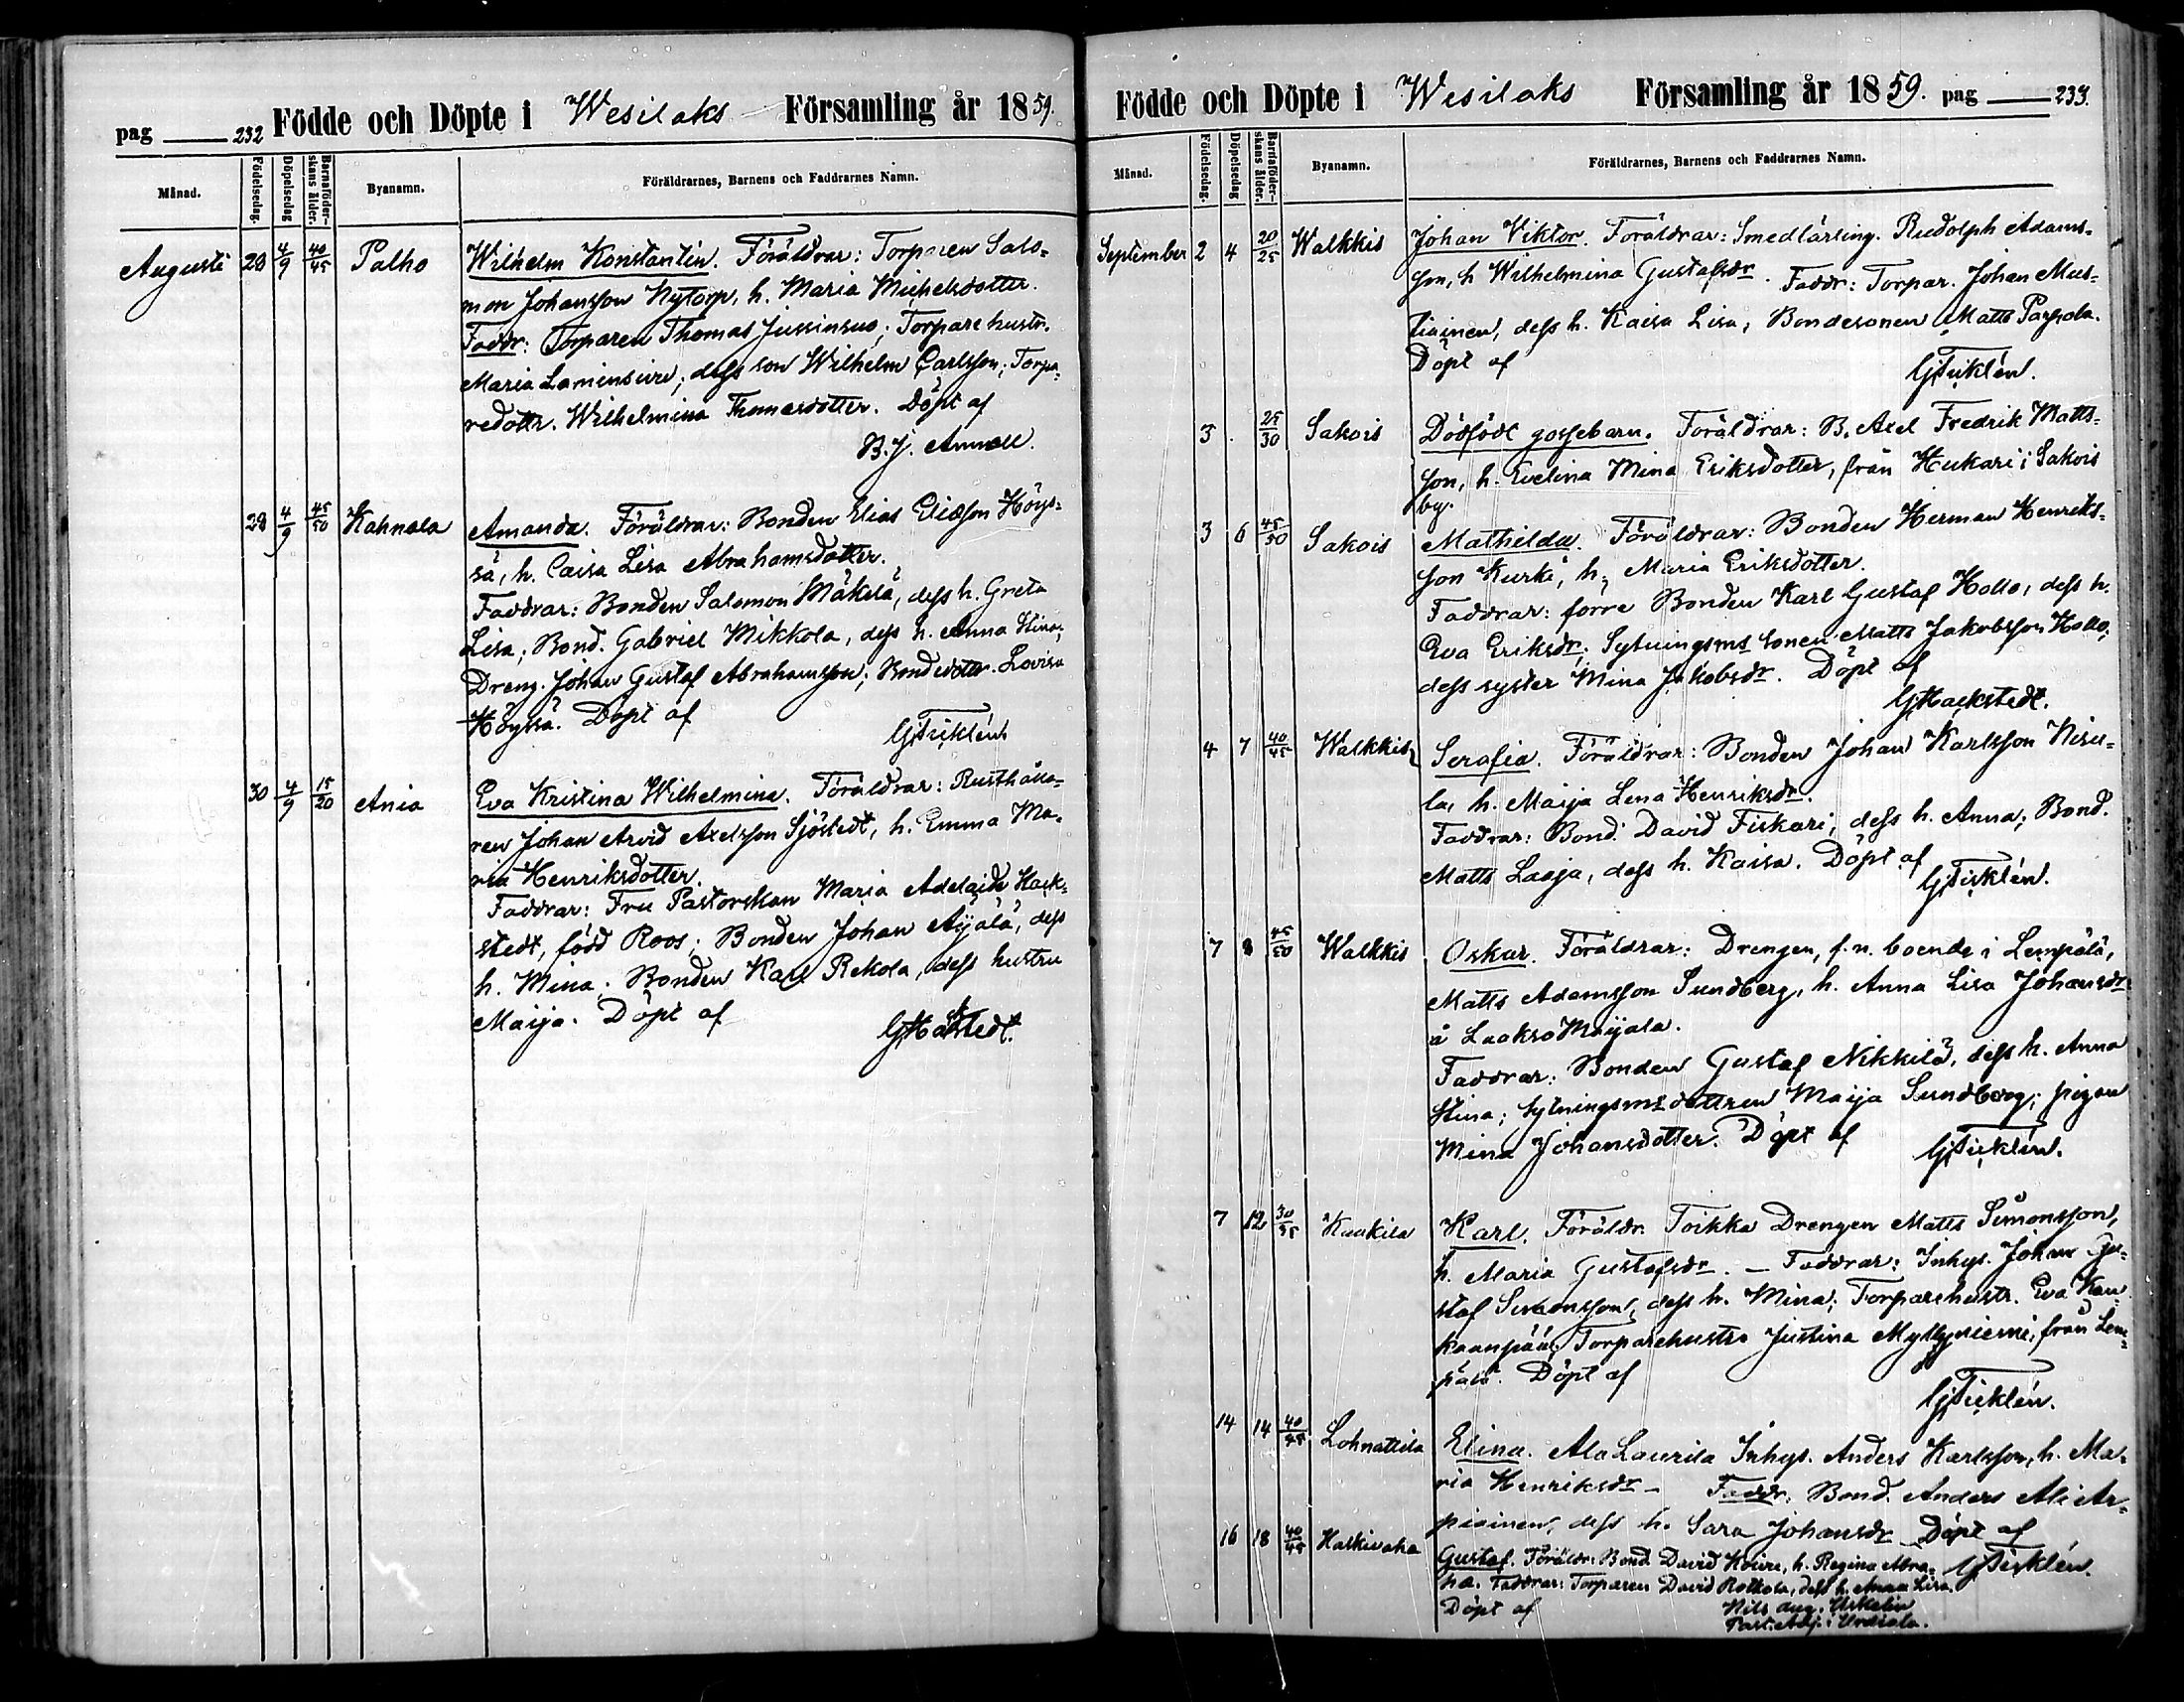 pag 232 Födde och Döpte i Wesilaks Församling år 1859.
Månad. Födelsedag. Döpelsedag Barnaföderskans ålder. Byanamn. Föräldrarnes, Barnens och Faddrarnes Namn.
Augusti 28 4/9 40/45 Palho Wilhelm Konstantin. Föräldrar: Torparen Salo=
mon Johansson Nytorp, h. Maria Michelsdotter.
Faddr: Torparen Thomas Jussinsuo; Torparehustr.
Maria Laminsivu; dess son Wilhelm Carlsson; Torpa=
redottr. Wilhelmina Thomasdotter. Döpt af
B. J. Annell.
28 4/9 45/50 Kahnala Amanda. Föräldrar: Bonden Elias Eliasson Höys=
sä, h. Caisa Lisa Abrahamsdotter.
Faddrar: Bonden Salomon Mäkelä, dess h. Greta
Lisa; Bond. Gabriel Mikkola, dess h. Anna Stina;
Dreng. Johan Gustaf Abrahamsson; Bondedottr. Lovisa
Höyssä. Döpt af
GTicklén.
30 4/9 15/20 Ania Eva Kristina Wilhelmina. Föräldrar: Rusthålla=
ren Johan Arvid Axelsson Sjöstedt, h. Emma Ma=
ria Henriksdotter.
Faddrar: Fru Pastorskan Maria Adelaide Hack=
stedt, född Roos; Bonden Johan Äijälä, dess
h. Mina; Bonden Karl Rekola, dess hustru
Maija. Döpt af
GHackstedt.
Födde och Döpte i Wesilaks Församling år 1859. pag 233.
Månad. Födelsedag. Döpelsedag Barnaföderskans ålder. Byanamn. Föräldrarnes, Barnens och Faddrarnes Namn.
September 2 4 20/25 Walkkis Johan Viktor. Föräldrar: Smedlärling. Rudolph Adams=
son, h Wilhelmina Gustafsdr. Faddr: Torpar. Johan Mus=
tiainen, dess h. Kaisa Lisa; Bondesonen Matts Parpola.
Döpt af
GTicklén.
3 25/30 Sakois Dödfödt gossebarn. Föräldrar: B. Axel Fredrik Matts=
son, h. Evelina Mina Eriksdotter, från Hukari i Sakois
by.
3 6 45/50 Sakois Mathilda. Föräldrar: Bonden Herman Henriks=
son Kurki, h. Maria Eriksdotter.
Faddrar: förre Bonden Karl Gustaf Hollo, dess h.
Eva Eriksdr; Sytningsms sonen Matts Jakobsson Hollo;
dess syster Mina Jakobsdr. Döpt af
GHackstedt.
4 7 40/45 Walkkis Serafia. Föräldrar: Bonden Johan Karlsson Nisu=
la, h. Maija Lena Henriksdr.
Faddrar: Bond. David Fiskari, dess h. Anna; Bond.
Matts Laaja, dess h. Kaisa. Döpt af
GTicklén.
7 8 45/50 Walkkis Oskar. Föräldrar: Drengen, f.n. boende i Lempälä,
Matts Adamsson Sundberg, h. Anna Lisa Johansdr
å Laakso Maijala.
Faddrar: Bonden Gustaf Nikkilä, dess h. Anna
Stina; Sytningsms dottren Maija Sundberg; pigan
Mina Johansdotter. Döpt af
GTicklén.
7 12 30/35 Kaukila Karl. Föräldr. Toikka Drengen Matts Simonsson,
h. Maria Gustafsdr. – Faddrar: Inhys. Johan Gu=
staf Simonsson, dess h. Mina; Torparehustr. Eva Kan
kaanpää; Torparehustr. Justina Myllyniemi, från Lem=
pälä. Döpt af
GTicklén.
14 14 40/45 Lohnattila Elina. Ala Laurila Inhys. Anders Karlsson, h. Ma=
ria Henriksdr – Faddr: Bond. Anders Ali Ar=
piainen, dess h. Sara Johansdr Döpt af
GTicklén.
16 18 40/45 Koskivoha Gustaf. Föräldr: Bond David h. Regina Abra=
ha. Faddrar: Torparen David Rotkola, dess h. Anna Lisa.
Döpt af Nils Aug. Uskelin
Past. Adj. i Urdiala.